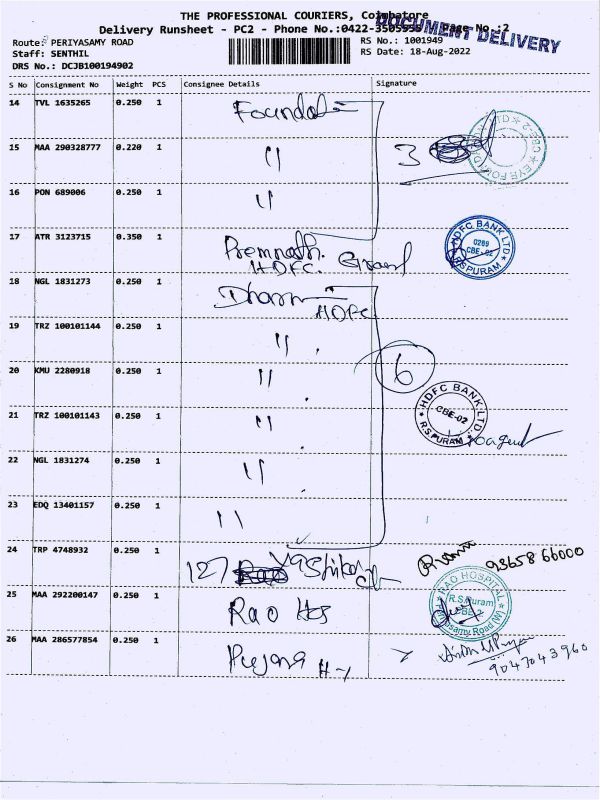 THE PROFESSIONAL COURIERS, Coimbatore
DOCUMENT DELIVERY
Delivery Runsheet - PC2 - Phone No.:0422-3505995 Page No.:2
Route: PERIYASAMY ROAD RS No.: 1001949
Staff: SENTHIL RS Date: 18-Aug-2022
DRS No.: DCJB100194902
S No Consignment No Weight PCS Consignee Details Signature
14 TVL 1635265 0.250 1
15 MAA 290328777 0.220 1 " 3
16 PON 689006 0.250 1 "
17 ATR 3123715 0.350 1 Premnath.
HDFC.
HDFC BANK LTD
0269
CBE-02
R S PURAM
18 NGL 1831273 0.250 1
HDFC
19 TRZ 100101144 0.250 1 "
20 KMU 2280918 0.250 1 " 6
21 TRZ 100101143 0.250 1 "
HDFC BANK LTD.
CBE-02
R.S.PURAM
22 NGL 1831274 0.250 1 "
23 EDQ 13401157 0.250 1 "
24 TRP 4748932 0.250 1 127
98658 66000
25 MAA 292200147 0.250 1 Rao Hos
RAO HOSPITAL
R.S.Puram
26 MAA 286577854 0.250 1
9047043960